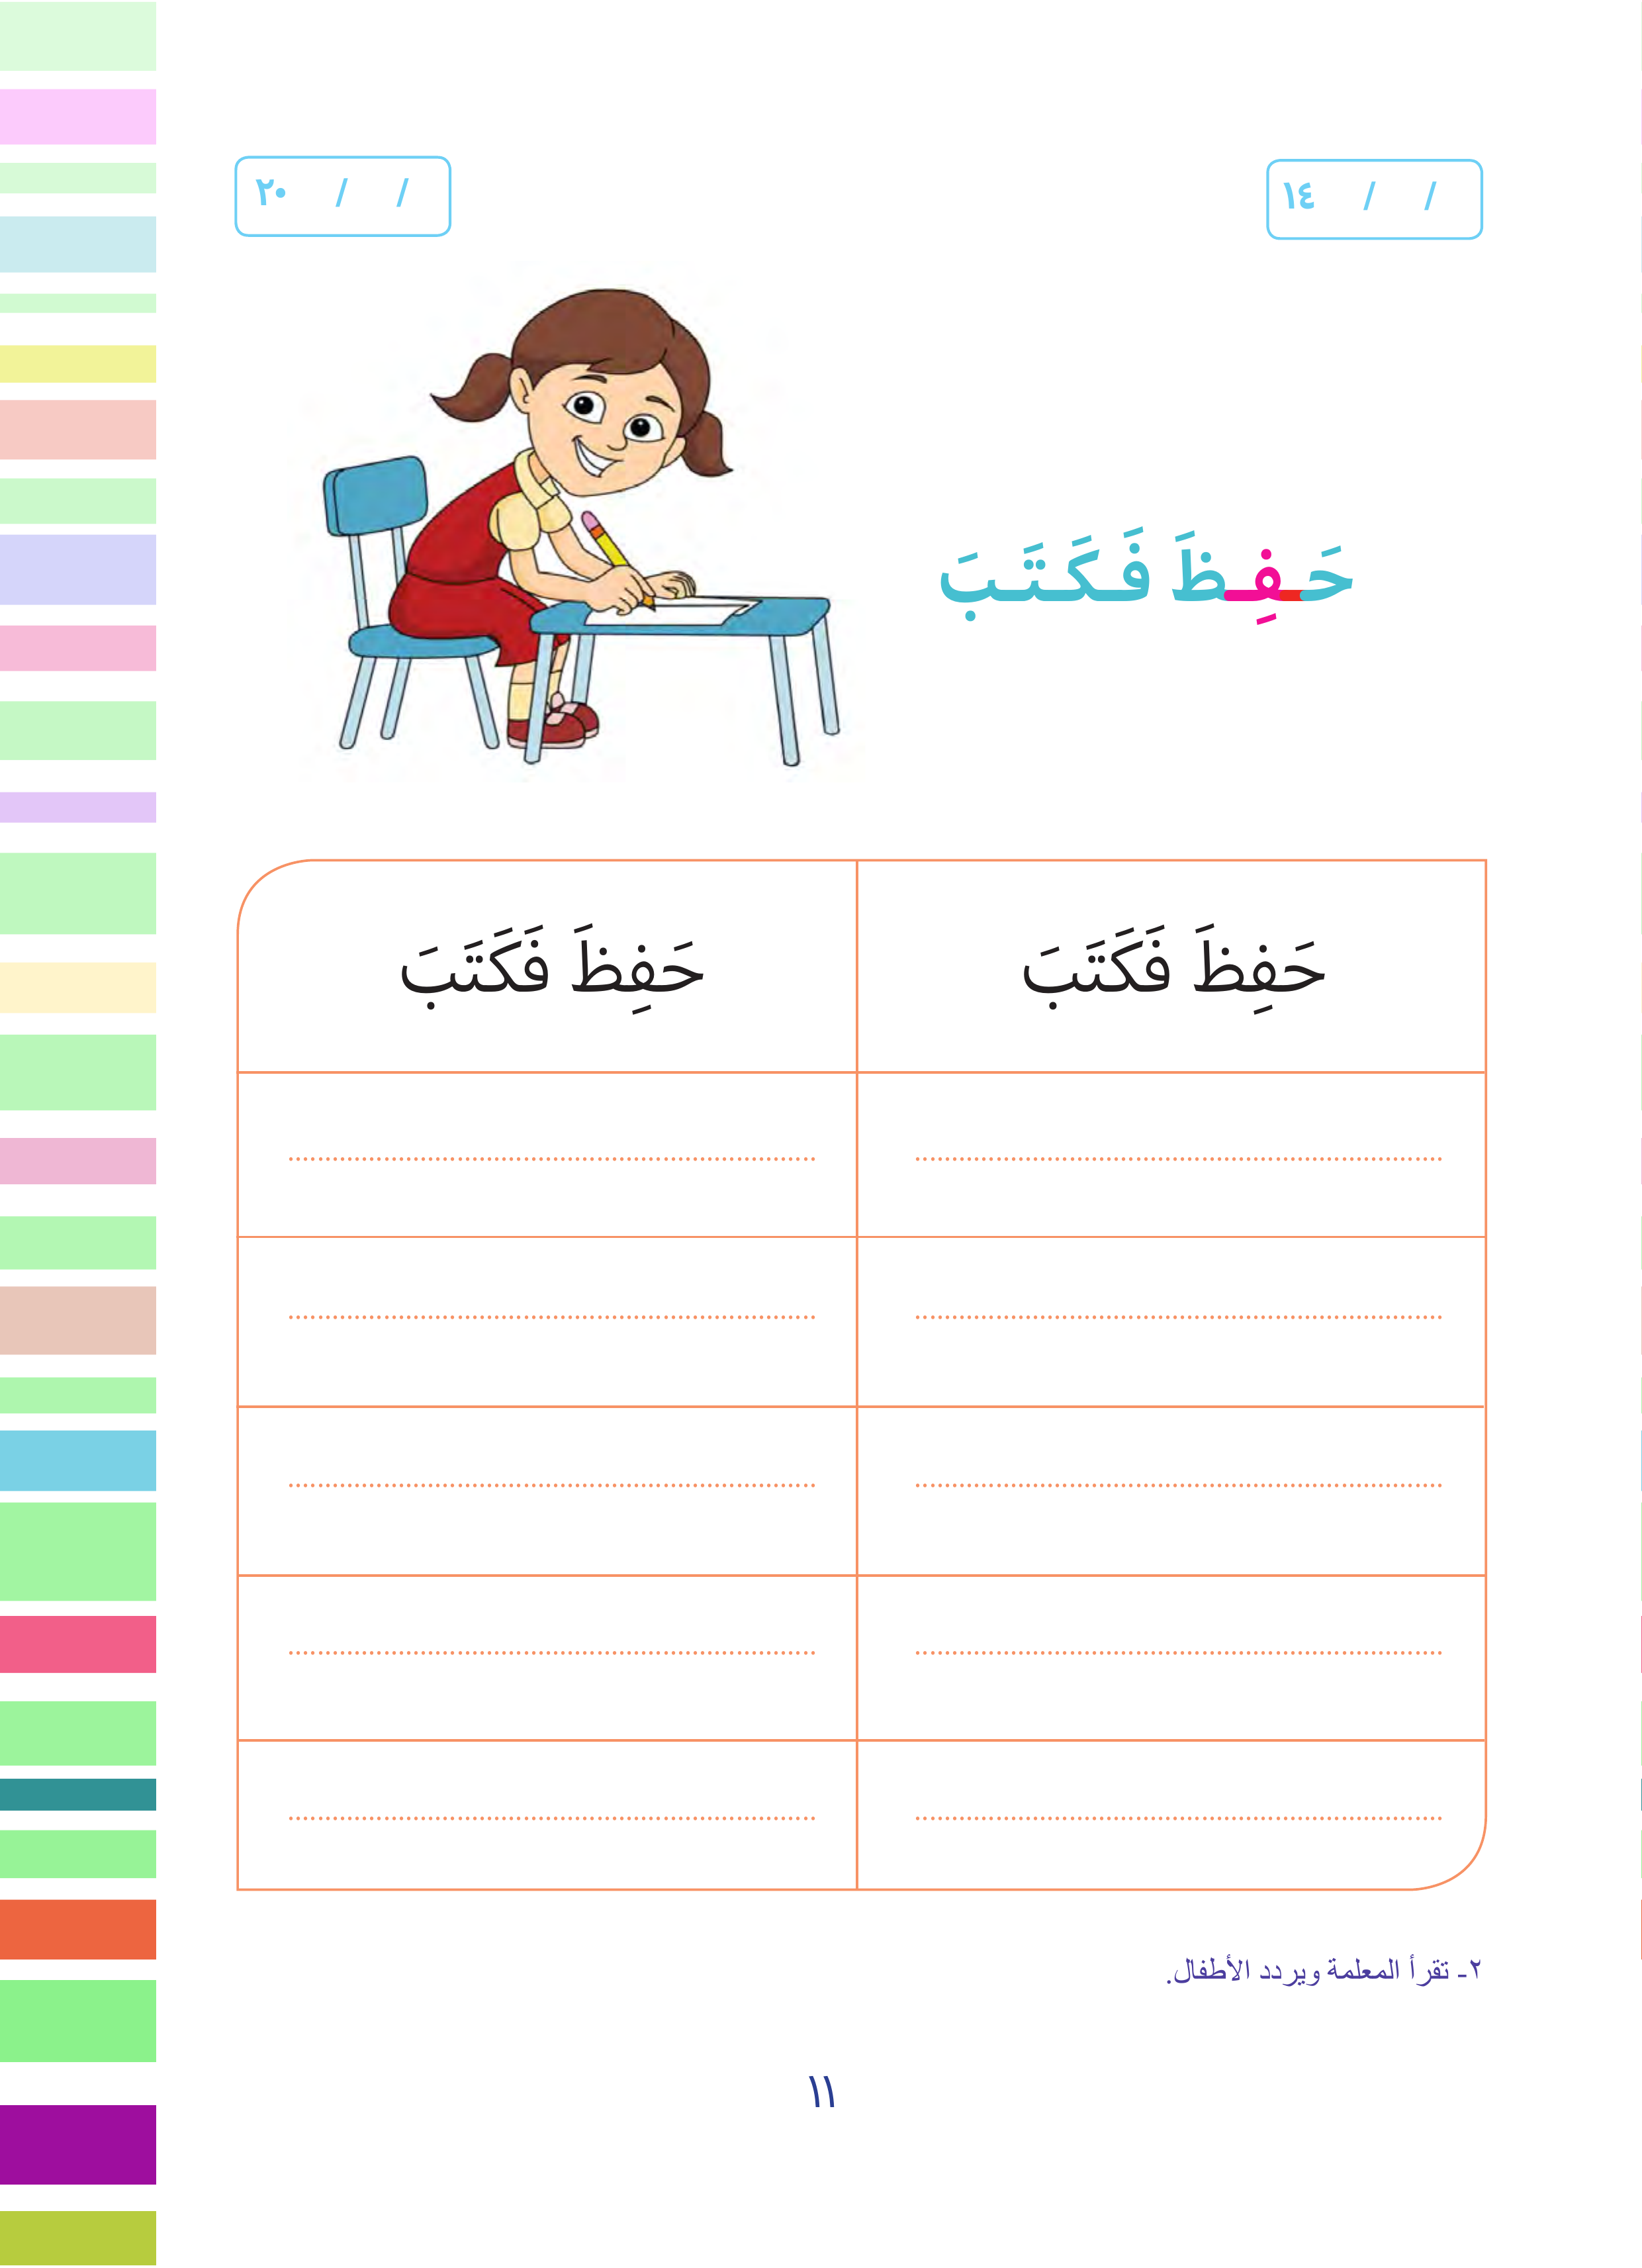 / / ١٤
/ / ٢٠
حَـفِـظَ فَـكَـتَـبَ
حَفِظَ فَكَتَبَ
حَفِظَ فَكَتَبَ
٢- تقرأ المعلمة ويردد الأطفال.
١١